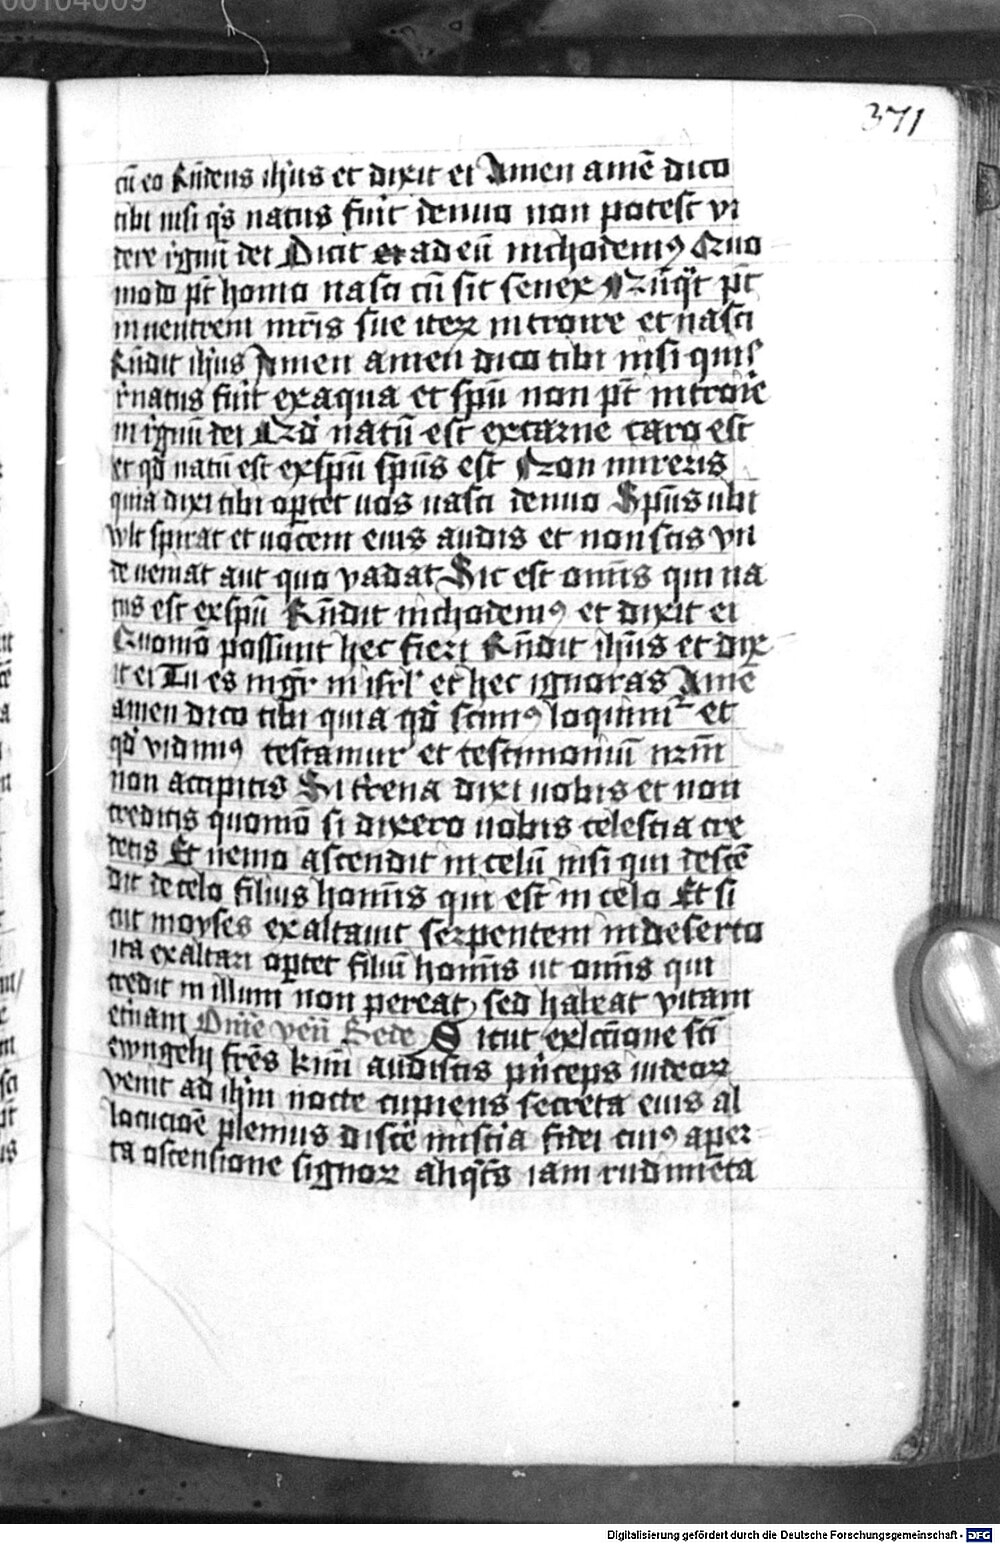 00104009
371
cū eo Rn̄dens ih̄us et dixit ei Amen amē dico
tibi nisi qͥs natus fuīt denuo non potest vi
dere rͤgnū dei Dicit ad eū nichodemꝰ Quo
modo pt̄ homo nasci cū sit senex Nūqͥt pt̄
in uentrem mr̄is sue iteꝝ introire et nasci
Rn̄dit ih̄us Amen amen dico tibi nisi quis
rͤnatus fuīt ex aqua et sp̄u non pt̄ introire
in rͤgnū dei Qd̄ natū est ex carne caro est
et qd̄ natū est ex sp̄u sp̄us est Non mireris
quia dixi tibi oꝑtet uos nasci denuo Sp̄us ubi
vult spirat et uocem eius audis et non scis vn
de ueniat aut quo vadat Sic est omīs qui na
tus est ex sp̄u Rn̄dit nichodemꝰ et dixit ei
Quomō possunt hec fieri Rn̄dit ih̄us et dix
it ei Tu es mgͬ in isrl̄ et hec ignoras Amē
amen dico tibi quia qd̄ scimꝰ loquimͬ et
qd̄ vidimꝰ testamur et testimoniū nr̄m
non accipitis Si tͬrena dixi uobis et non
creditis quomō si dixero uobis celestia cre
detis Et nemo ascendit in celū nisi qui descē
dit de celo filius homīs qui est in celo Et si
cut moyses exaltauit serpentem in deserto
ita exaltari oꝑtet filiū homīs ut omīs qui
credit in illum non pereat sed habeat vitam
et̄nam Dn̄ie ven̄ Bede Sicut ex lcc̄ione sc̄i
ewngelij fr̄es kmī audistis prͥnceps iudeoꝝ
venit ad ih̄m nocte cupiens secreta eius al
locucioē plenius discē mistͤia fidei cuiꝰ aper
ta ostensione signoꝝ aliqͣs iam rudimēta
Digitalisierung gefördert durch die Deutsche Forschungsgemeinschaft - DFG